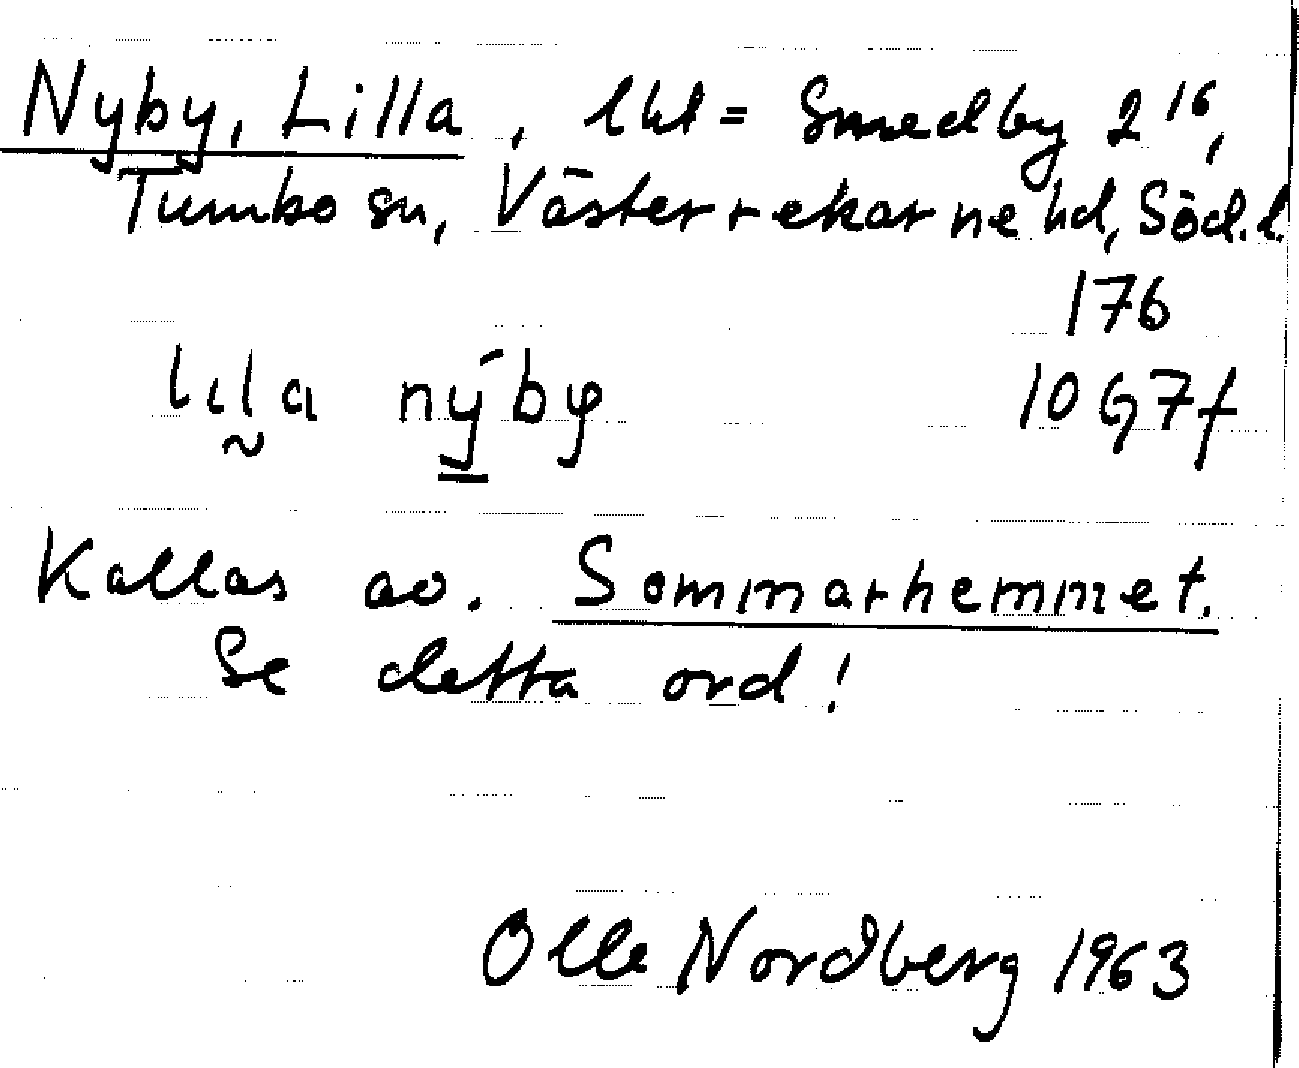 Nyby, Lilla, lht = Smedby 2¹⁶,
Tumbo sn, Västerrekarne hd, Söd.l.
176
lıl̰a ný̲by 10 G7f
Kallas av. Sommarhemmet.
Se detta ord!
Olle Nordberg 1963